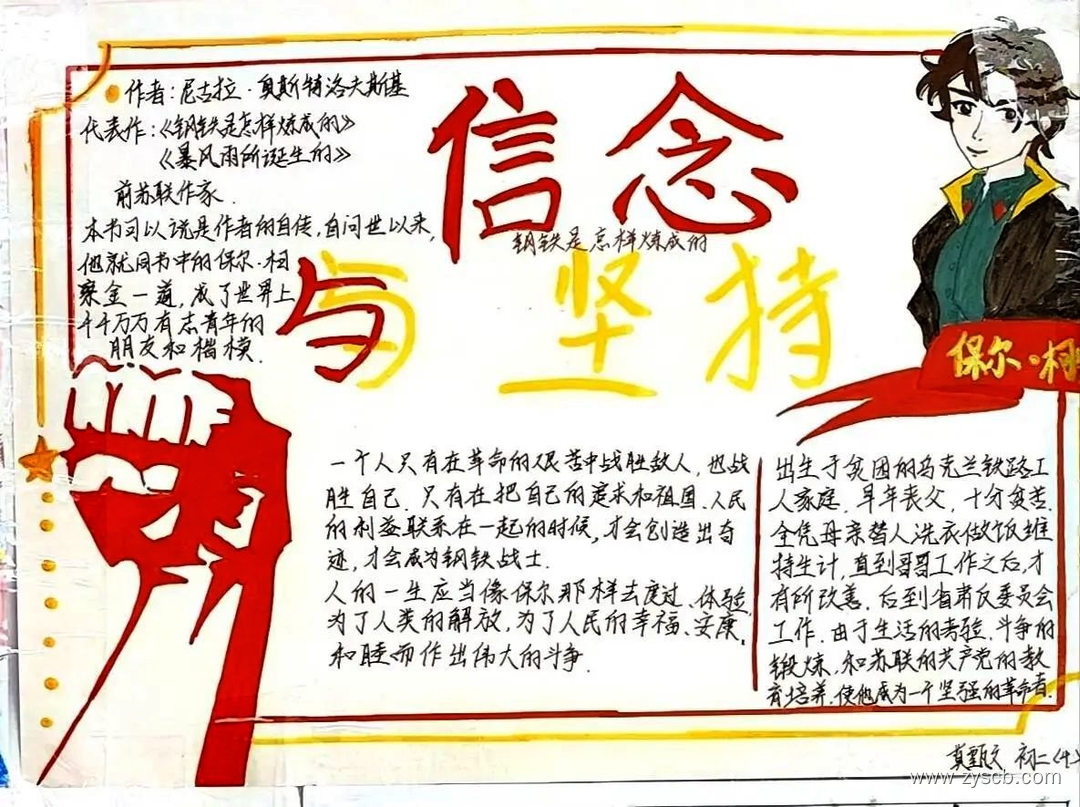 作者:尼古拉·奥斯特洛夫斯基
代表作:《钢铁是怎样炼成的》
《暴风雨所诞生的》
前苏联作家.
本书可以说是作者的自传,自问世以来,
他就同书中的保尔·柯
察金一道,成了世界上
千千万万有志青年的
朋友和楷模.
信念
钢铁是怎样炼成的
与坚持
保尔·柯
一个人只有在革命的艰苦中战胜敌人,也战
胜自己.只有在把自己的追求和祖国、人民
的利益联系在一起的时候,才会创造出奇
迹,才会成为钢铁战士.
人的一生应当像保尔那样去度过、体验,
为了人类的解放,为了人民的幸福、安康、
和睦而作出伟大的斗争.
出生于贫困的乌克兰铁路工
人家庭.早年丧父,十分贫苦.
全凭母亲替人洗衣做饭维
持生计,直到哥哥工作之后,才
有所改善.后到省肃反委员会
工作.由于生活的考验.斗争的
锻炼,和苏联的共产党的教
育培养.使他成为一个坚强的革命者.
初二(4)
www.zyscb.com